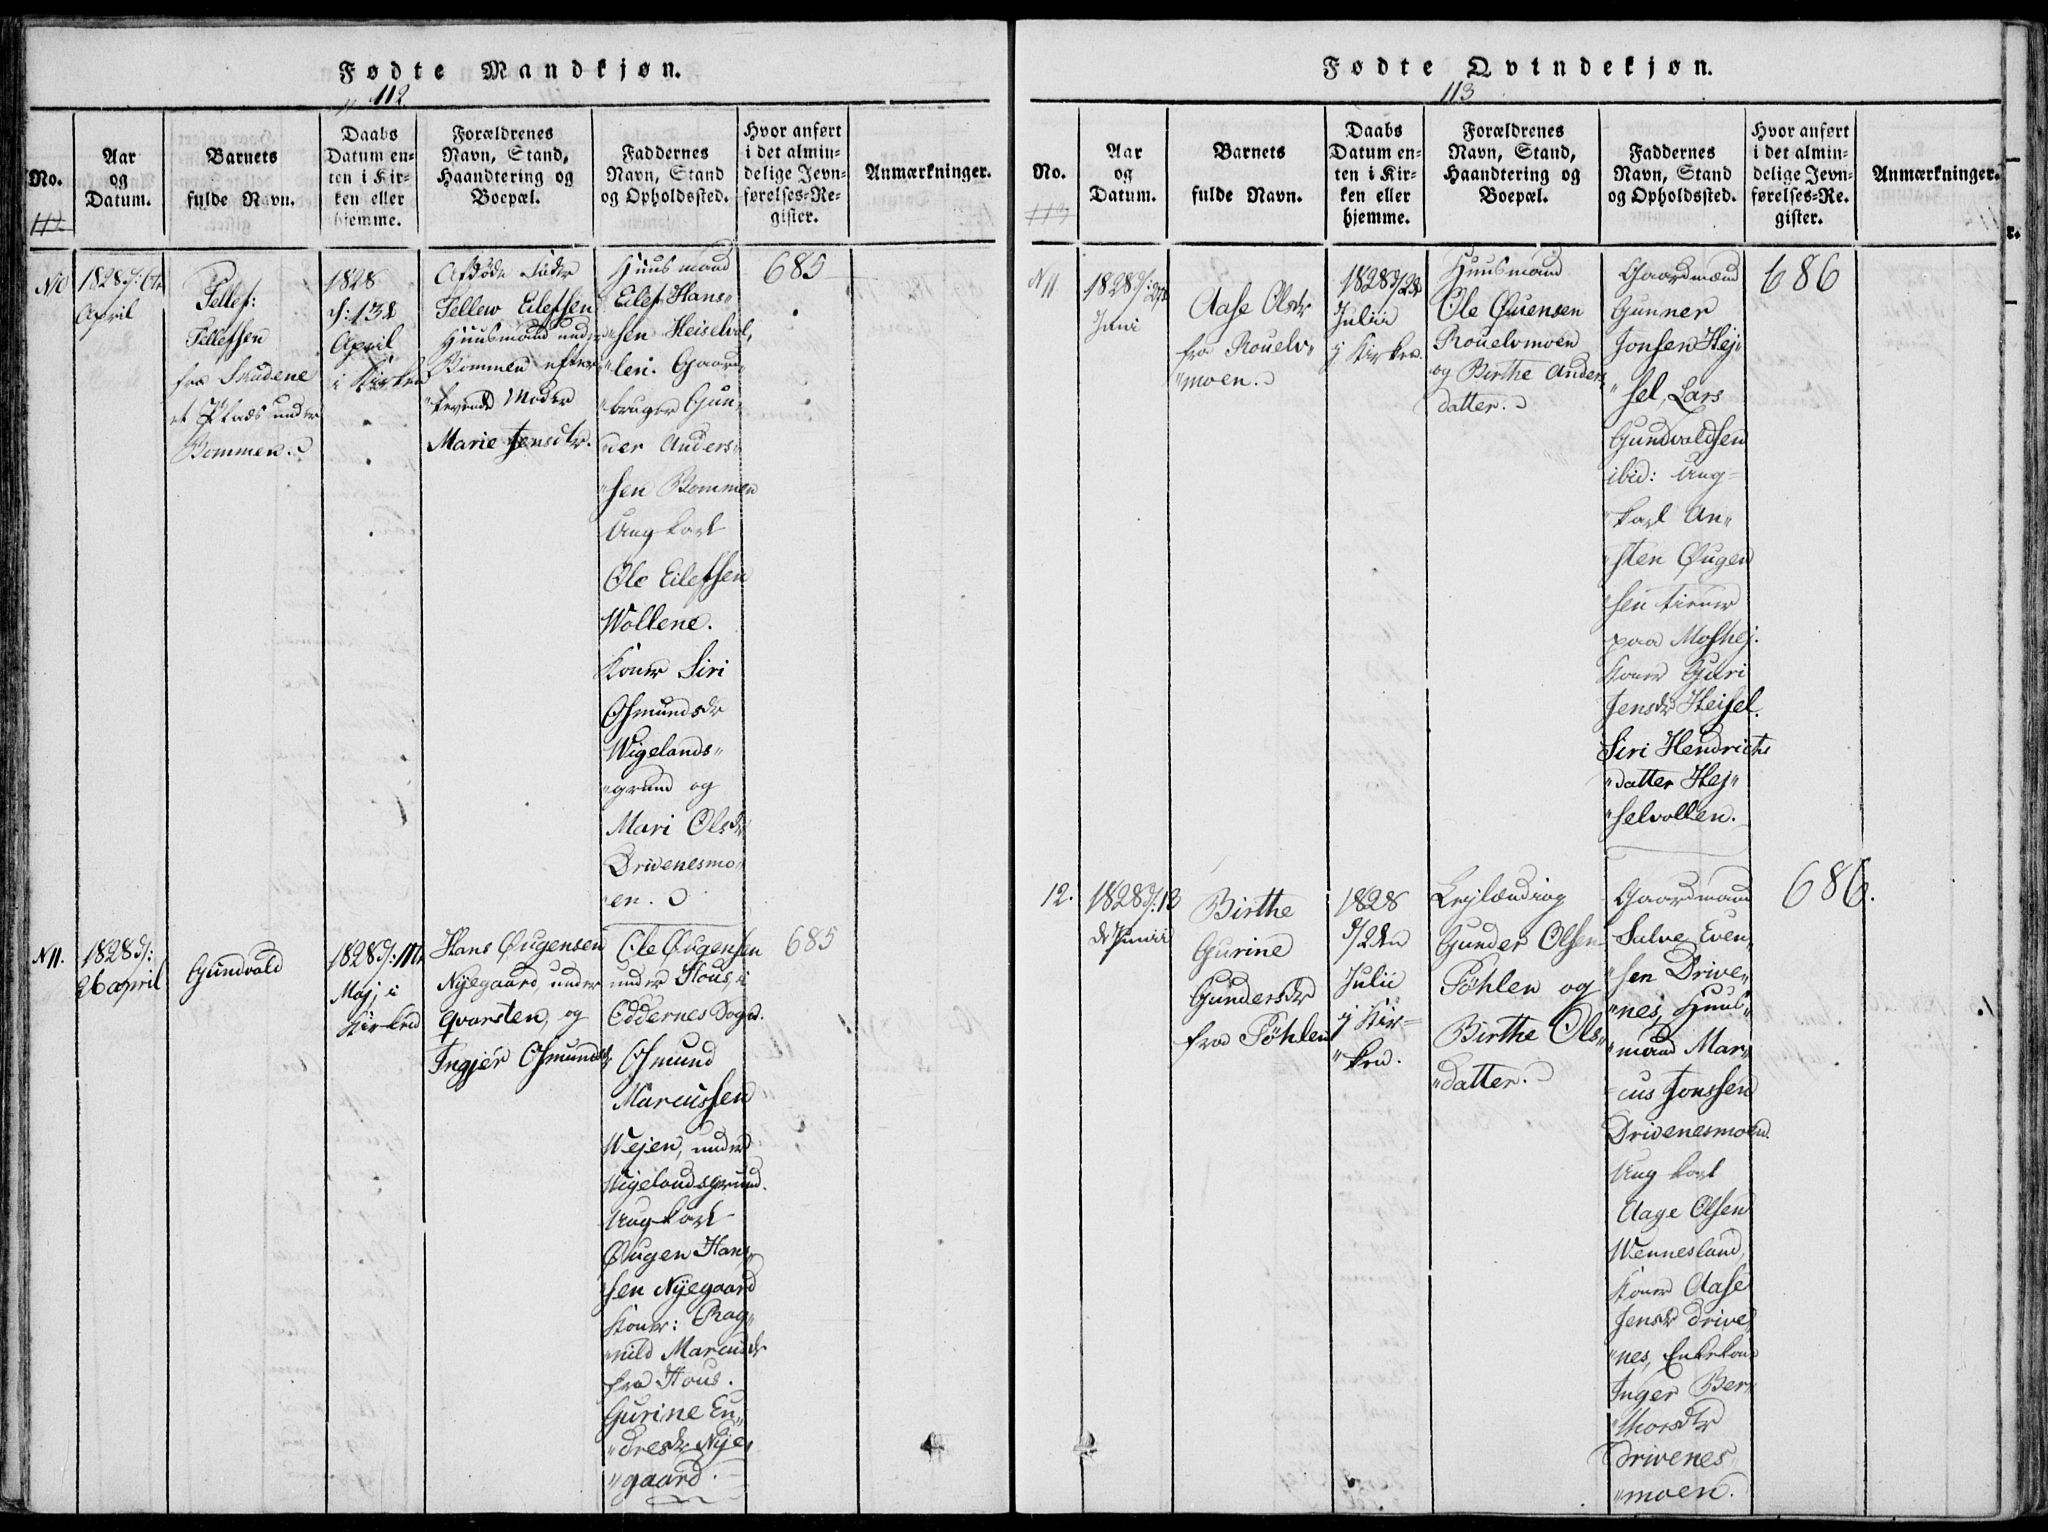 Fødte Mandkjøn.
112
No.
112
Aar
og
Datum.
Barnets
fulde Navn.
Daabs
Datum en-
ten i Kir-
ken eller
hjemme.
Forældrenes
Navn, Stand,
Haandtering og
Boepæl.
Faddernes
Navn, Stand
og Opholdssted.
Hvor anført
i det almin-
delige Jevn-
førelses-Re-
gister.
Anmærkninger.
N10
1828
April
Tellef:
Tellefsen
fra Studene
et Plads under
Bommen.
1828
d: 13d
April
i Kirken
Afdøde Fader
Fellew Eilefsen
Huusmand under
Bommen efter-
"levende Moder
Marie Jensdtr.
Huusmand
Eilef Hans"
"sen Heiselvol,
"len. Gaard"
"bruger Gun"
"der Anders"
"sen Bommen
Ung karl
Ole Eilefsen
Wollene.
Koner Siri
Osmundsdr
Wigelands"
"grund og
Mari Olsdr
Drivenesmo"
"en.
685
N11.
1828 d:
26 april
Gundvald
1828 d: 11te
Maj i
Kirken
Hans Øugensen
Nyegaard, under
Qvarsten, og
Ingjer Osmundsdr
Ole Øugensen
under Hous, i
Oddernes Sogn.
Osmund
Marcussen
Wejen, under
Wigelandsgrund.
Ung karl
Øugen Hans"
"sen Nyegaard
Koner: Rag"
"nild Marcusdr
fra Hous.
Gurine En"
"dresdr Nye"
"gaard.
685
Fødte Qvindekjøn.
113
No.
113
Aar
og
Datum.
Barnets
fulde Navn.
Daabs
Datum en-
ten i Kir-
ken eller
hjemme.
Forældrenes
Navn, Stand,
Haandtering og
Boepæl.
Faddernes
Navn, Stand
og Opholdssted.
Hvor anført
i det almin-
delige Jevn-
førelses-Re-
gister.
Anmærkninger.
N11
1828
Juni
Aase Olsdr
fra Rouelv"
"moen.
1828
Julii
i Kirken.
Huusmand
Ole Guensen
Rouelvmoen
og Birthe Anders
datter.
Gaardmænd
Gunner
Jonsen Hej"
"sel, Lars
Gundvaldsen
ibid: Ung=
"karl An"
"sten Øugen
"sen tiener
paa Moshej.
Koner Guri
Jensdr Heisel.
Siri Hendrichs
"datter Hej"
"selvollen.
686
12.
1828 d: 13
de Junii
Birthe
Gurine
Gundersdr
fra Føhlen
1828
d/2den
Julii
i Kir=
"ken.
Lejlænding
Gunder Olsen
Føhlen og
Birthe Ols"
"datter.
Gaardmand
Salve Even"
"sen Drive"
"nes, Huus"
"mand Mar"
"cus Jonssen
Drivenesmoen.
Ung karl
Aage Olsen
Wennesland,
Koner Aase
Jensdr Drive"
"nes, Enkekone
Inger Ber"
"thorsdtr
Drivenes"
"moen.
686.